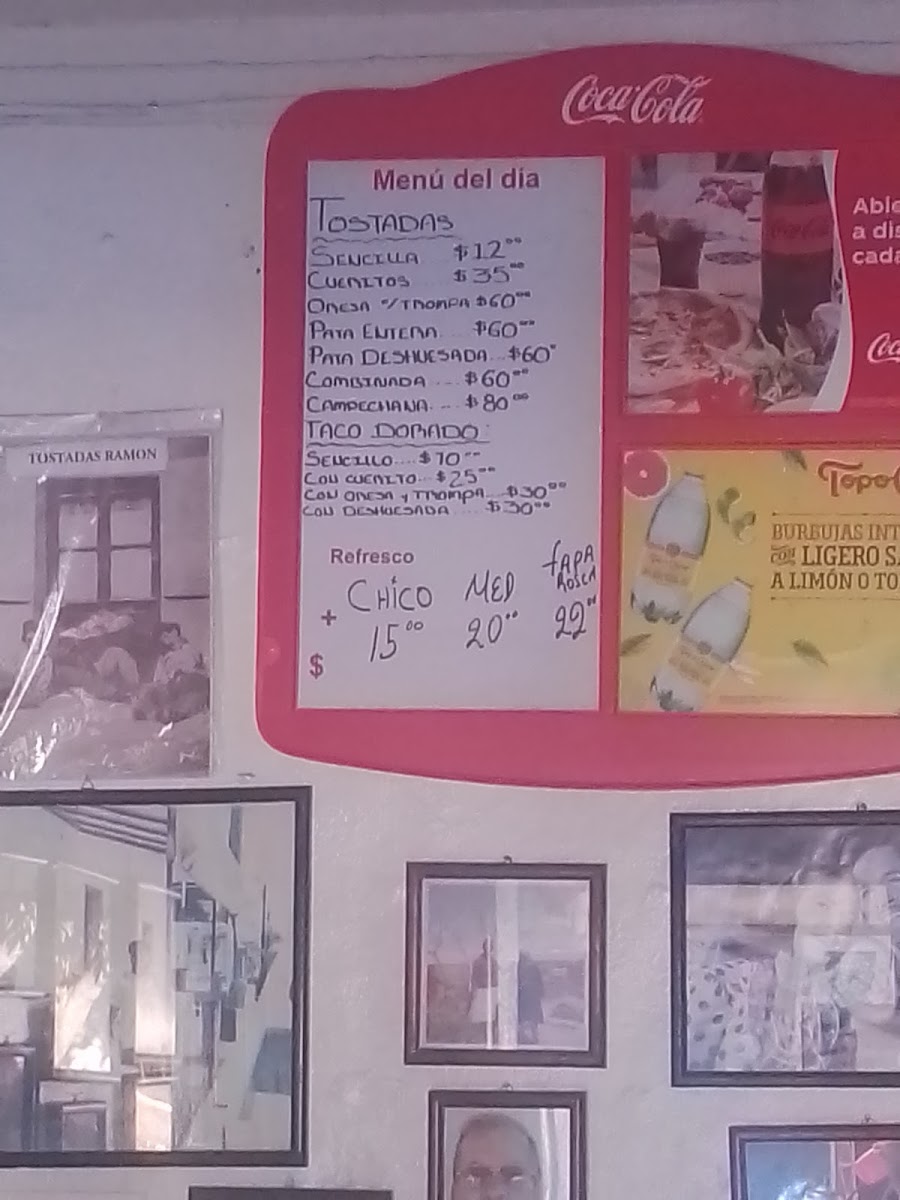 Coca-Cola
Menú del día
TOSTADAS
SENCILLA $12⁰⁰
CUERITOS $35⁰⁰
OREJA Y/TROMPA $60⁰⁰
PATA ENTERA.... $60⁰⁰
PATA DESHUESADA... $60⁰
COMBINADA .... $60⁰⁰
CAMPECHANA.... $80⁰⁰
TACO DORADO:
SENCILLO.... $10⁰⁰
CON CUERITO... $25⁰⁰
CON OREJA Y TROMPA... $30⁰⁰
CON DESHUESADA .... $30⁰⁰
Refresco
CHICO MED tAPA ROSCA
+ 15⁰⁰ 20⁰⁰ 22⁰⁰
$
a dis
cada
Coc
TOSTADAS RAMON
Topo
BURBUJAS INT
CON LIGERO S
A LIMÓN O TO